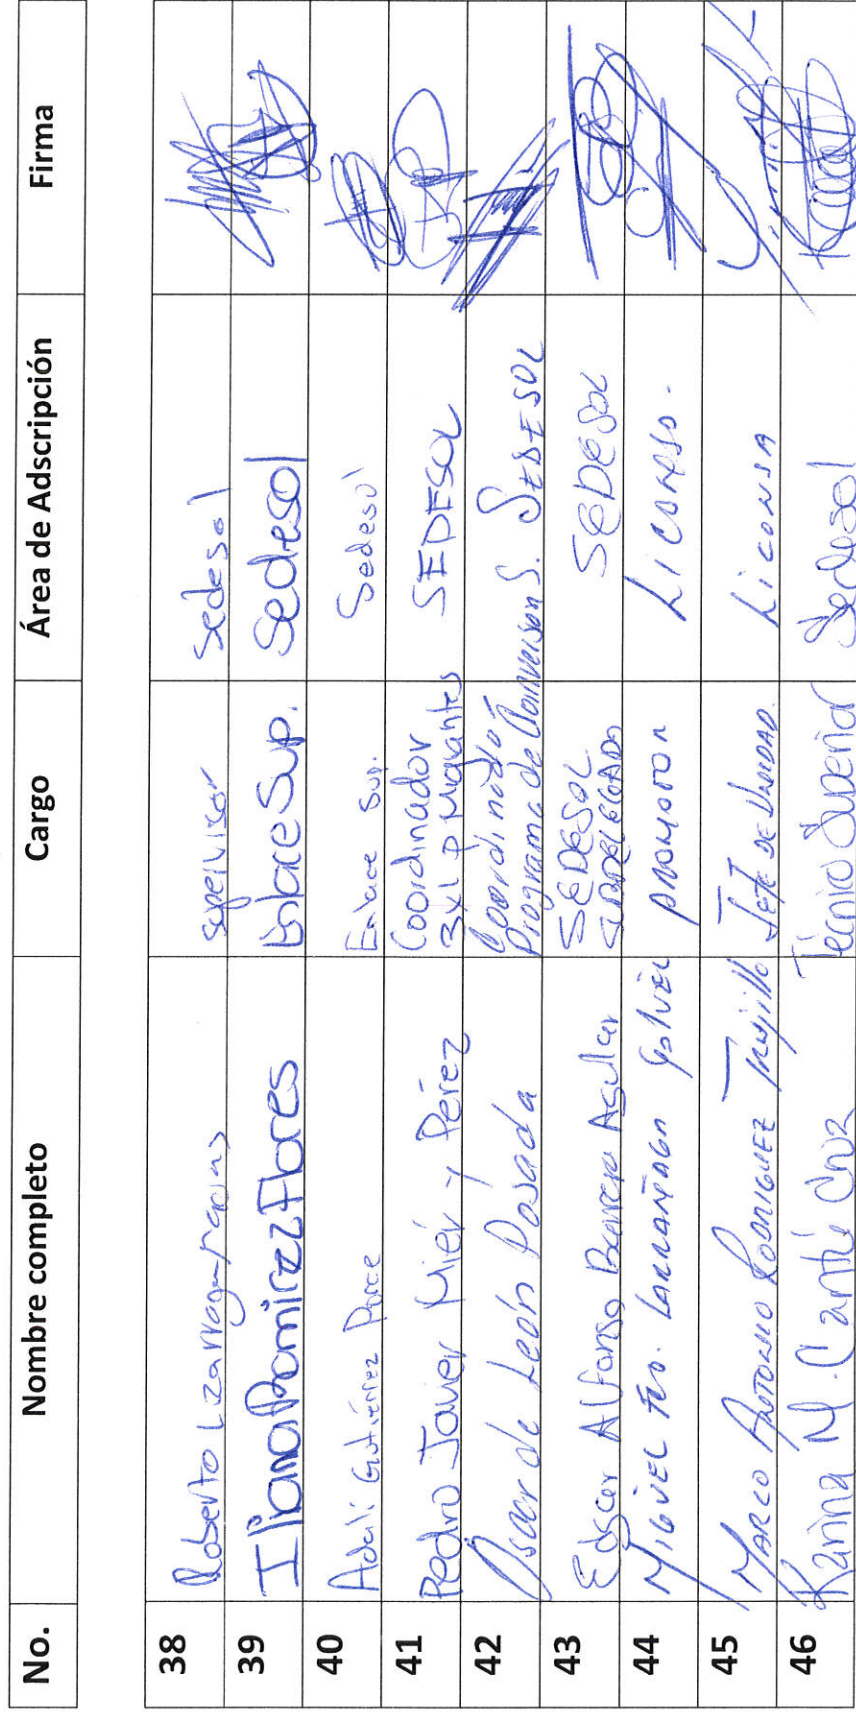 No. Nombre completo Cargo Área de Adscripción Firma
38 Roberto Lizarraga supervisor Sedesol
39 Iliana Ramirez Flores Enlace Sup. Sedesol
40 Adali Gutiérrez Ponce Enlace Sup. Sedesol
41 Pedro Javier Mier y Pérez Coordinador SEDESOL
3x1 p Migrantes
42 Oscar de León Posada Coordinador
Programa de Conversion S. SEDESOL
43 Edgar Alfonso Barrera Aguilar SEDESOL SEDESOL
SUBDELEGADO
44 MIGUEL Fco. LARRAÑAGA PROMOTOR LICONSA.
45 MARCO ANTONIO RODRIGUEZ Trujillo JEFE DE UNIDAD. LICONSA
46 Karina M. Cantú Cruz Técnico Superior Sedesol